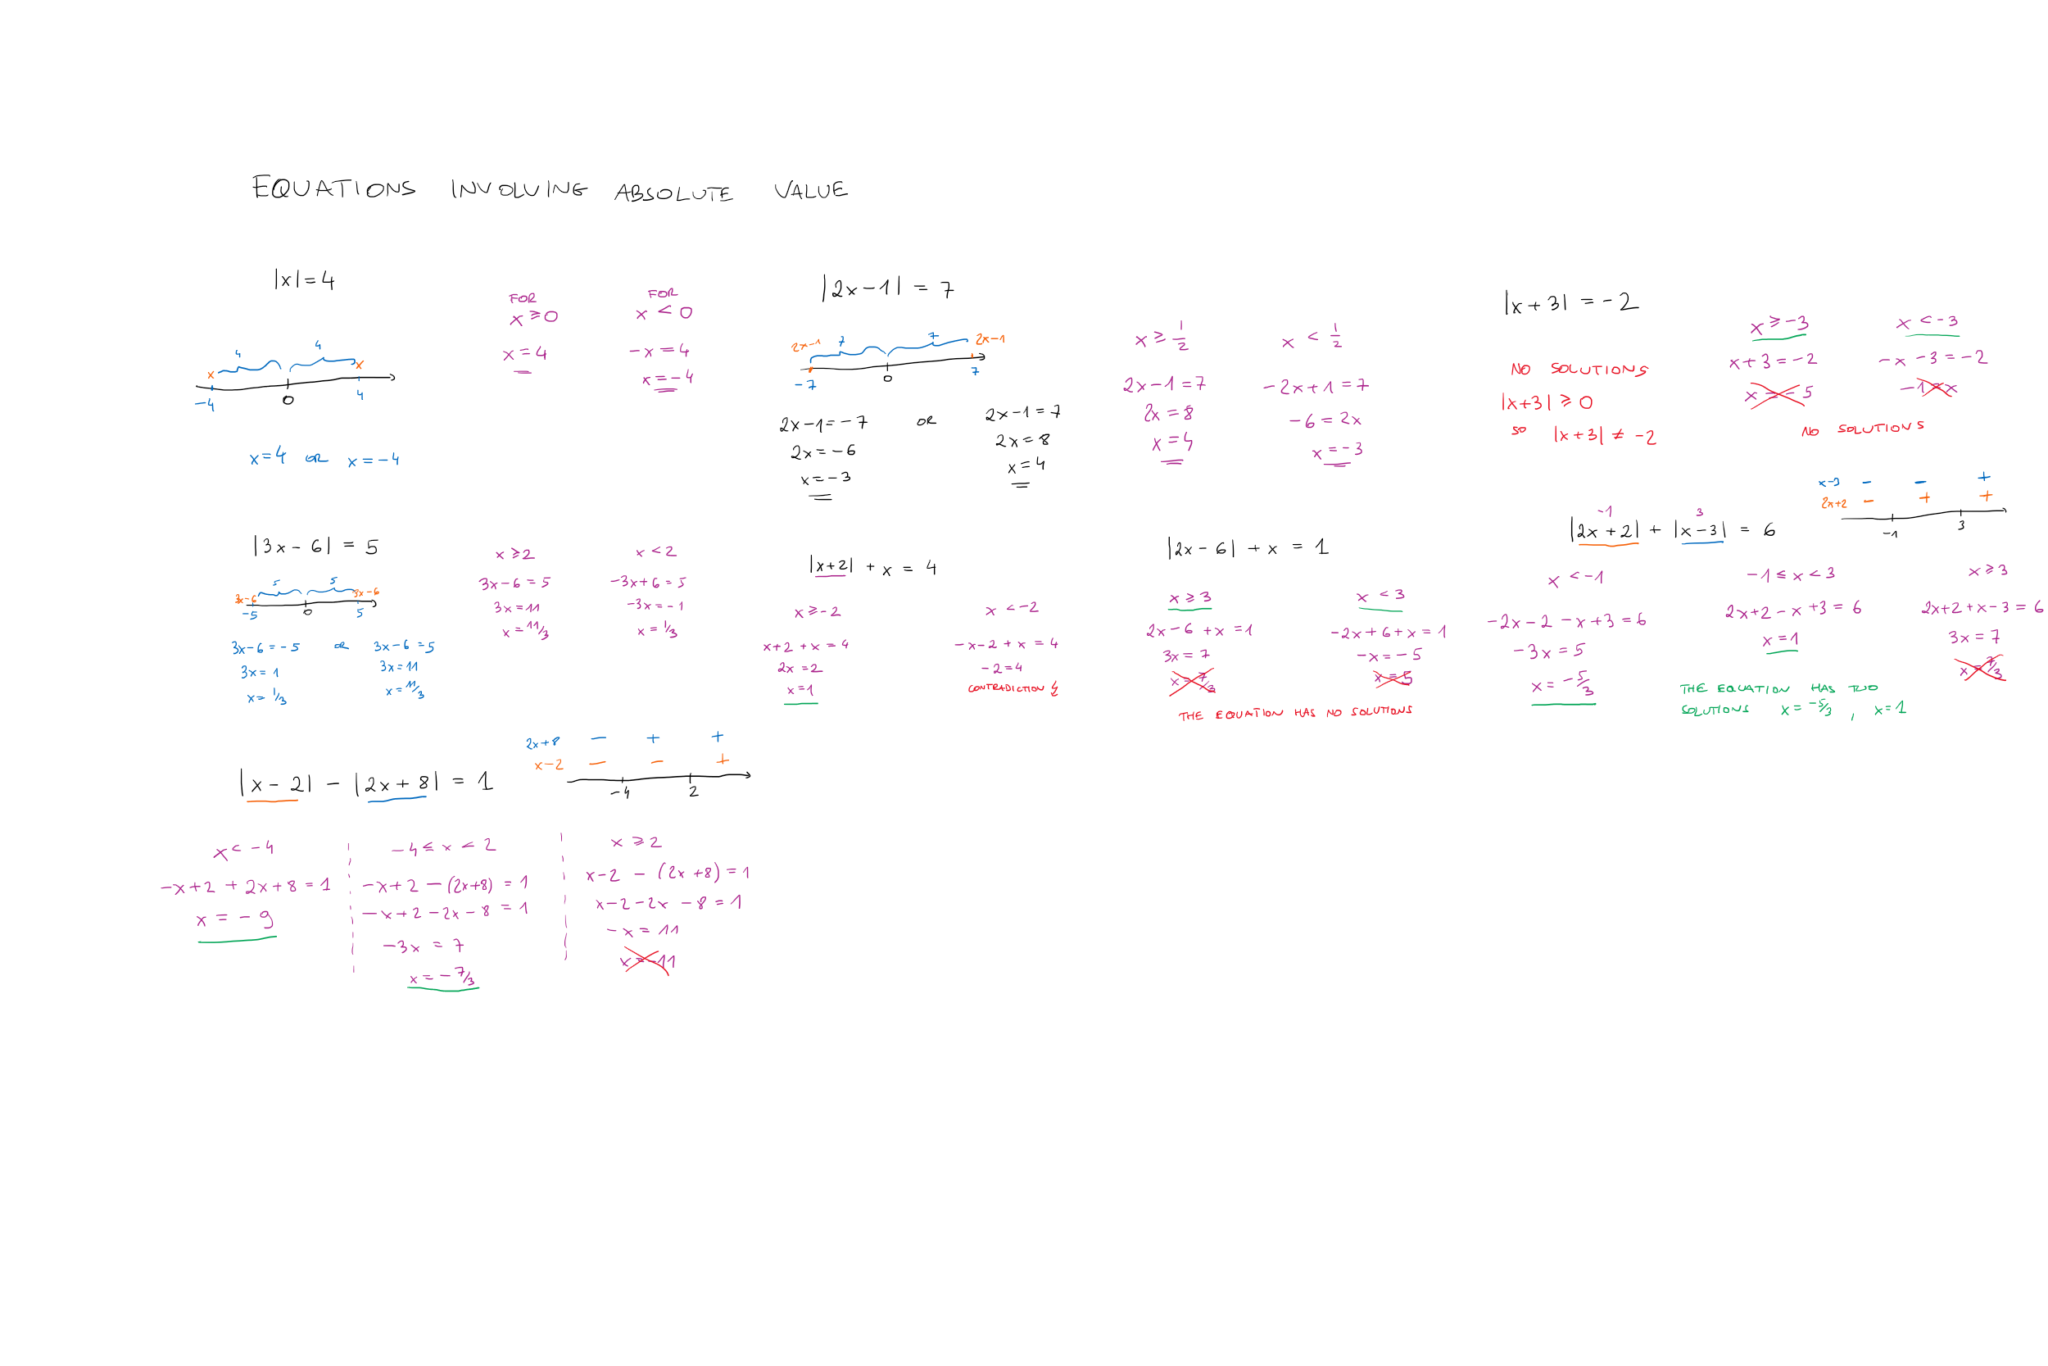 EQUATIONS INVOLVING ABSOLUTE VALUE
|x|=4
4 4
x x
-4 0 4
x=4 OR x=-4
FOR
x ≥ 0
x=4
FOR
x < 0
-x=4
x=-4
|2x-1| = 7
2x-1 7 7 2x-1
-7 0 7
2x-1=-7 OR 2x-1=7
2x=-6 2x=8
x=-3 x=4
x ≥ 1/2
2x-1=7
2x=8
x=4
x < 1/2
-2x+1=7
-6=2x
x=-3
|x+3| = -2
NO SOLUTIONS
|x+3| ≥ 0
SO |x+3| ≠ -2
x ≥ -3
x+3=-2
x=-5
x < -3
-x-3=-2
-1=x
NO SOLUTIONS
|3x-6| = 5
5 5
3x-6 3x-6
-5 0 5
3x-6=-5 OR 3x-6=5
3x=1 3x=11
x=1/3 x=11/3
x ≥ 2
3x-6=5
3x=11
x=11/3
x < 2
-3x+6=5
-3x=-1
x=1/3
|x+2| + x = 4
x ≥ -2
x+2+x=4
2x=2
x=1
x < -2
-x-2+x=4
-2=4
CONTRADICTION ↯
|2x-6| + x = 1
x ≥ 3
2x-6+x=1
3x=7
x=7/3
x < 3
-2x+6+x=1
-x=-5
x=5
THE EQUATION HAS NO SOLUTIONS
-1 3
|2x+2| + |x-3| = 6
x-3 - - +
2x+2 - + +
-1 3
x < -1
-2x-2-x+3=6
-3x=5
x=-5/3
-1 ≤ x < 3
2x+2-x+3=6
x=1
x ≥ 3
2x+2+x-3=6
3x=7
x=7/3
THE EQUATION HAS TWO
SOLUTIONS x=-5/3, x=1
|x-2| - |2x+8| = 1
2x+8 - + +
x-2 - - +
-4 2
x < -4
-x+2+2x+8=1
x=-9
-4 ≤ x < 2
-x+2-(2x+8)=1
-x+2-2x-8=1
-3x=7
x=-7/3
x ≥ 2
x-2-(2x+8)=1
x-2-2x-8=1
-x=11
x=-11